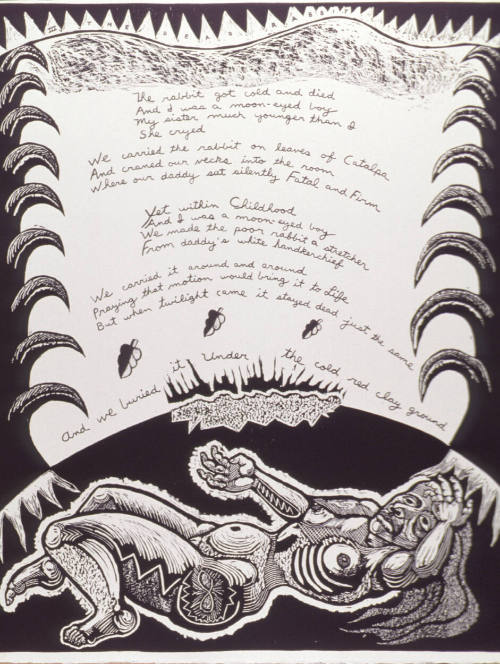 THE DEAD RABBIT
The rabbit got cold and died
And I was a moon-eyed boy
My sister much younger than I
She cryed
We carried the rabbit on leaves of Catalpa
And craned our necks into the room
Where our daddy sat silently Fatal and Firm
Yet within Childhood
And I was a moon-eyed boy
We made the poor rabbit a stretcher
From daddy's white handkerchief
We carried it around and around
Praying that motion would bring it to Life
But when twilight came it stayed dead just the same
And we buried it under the cold red clay ground